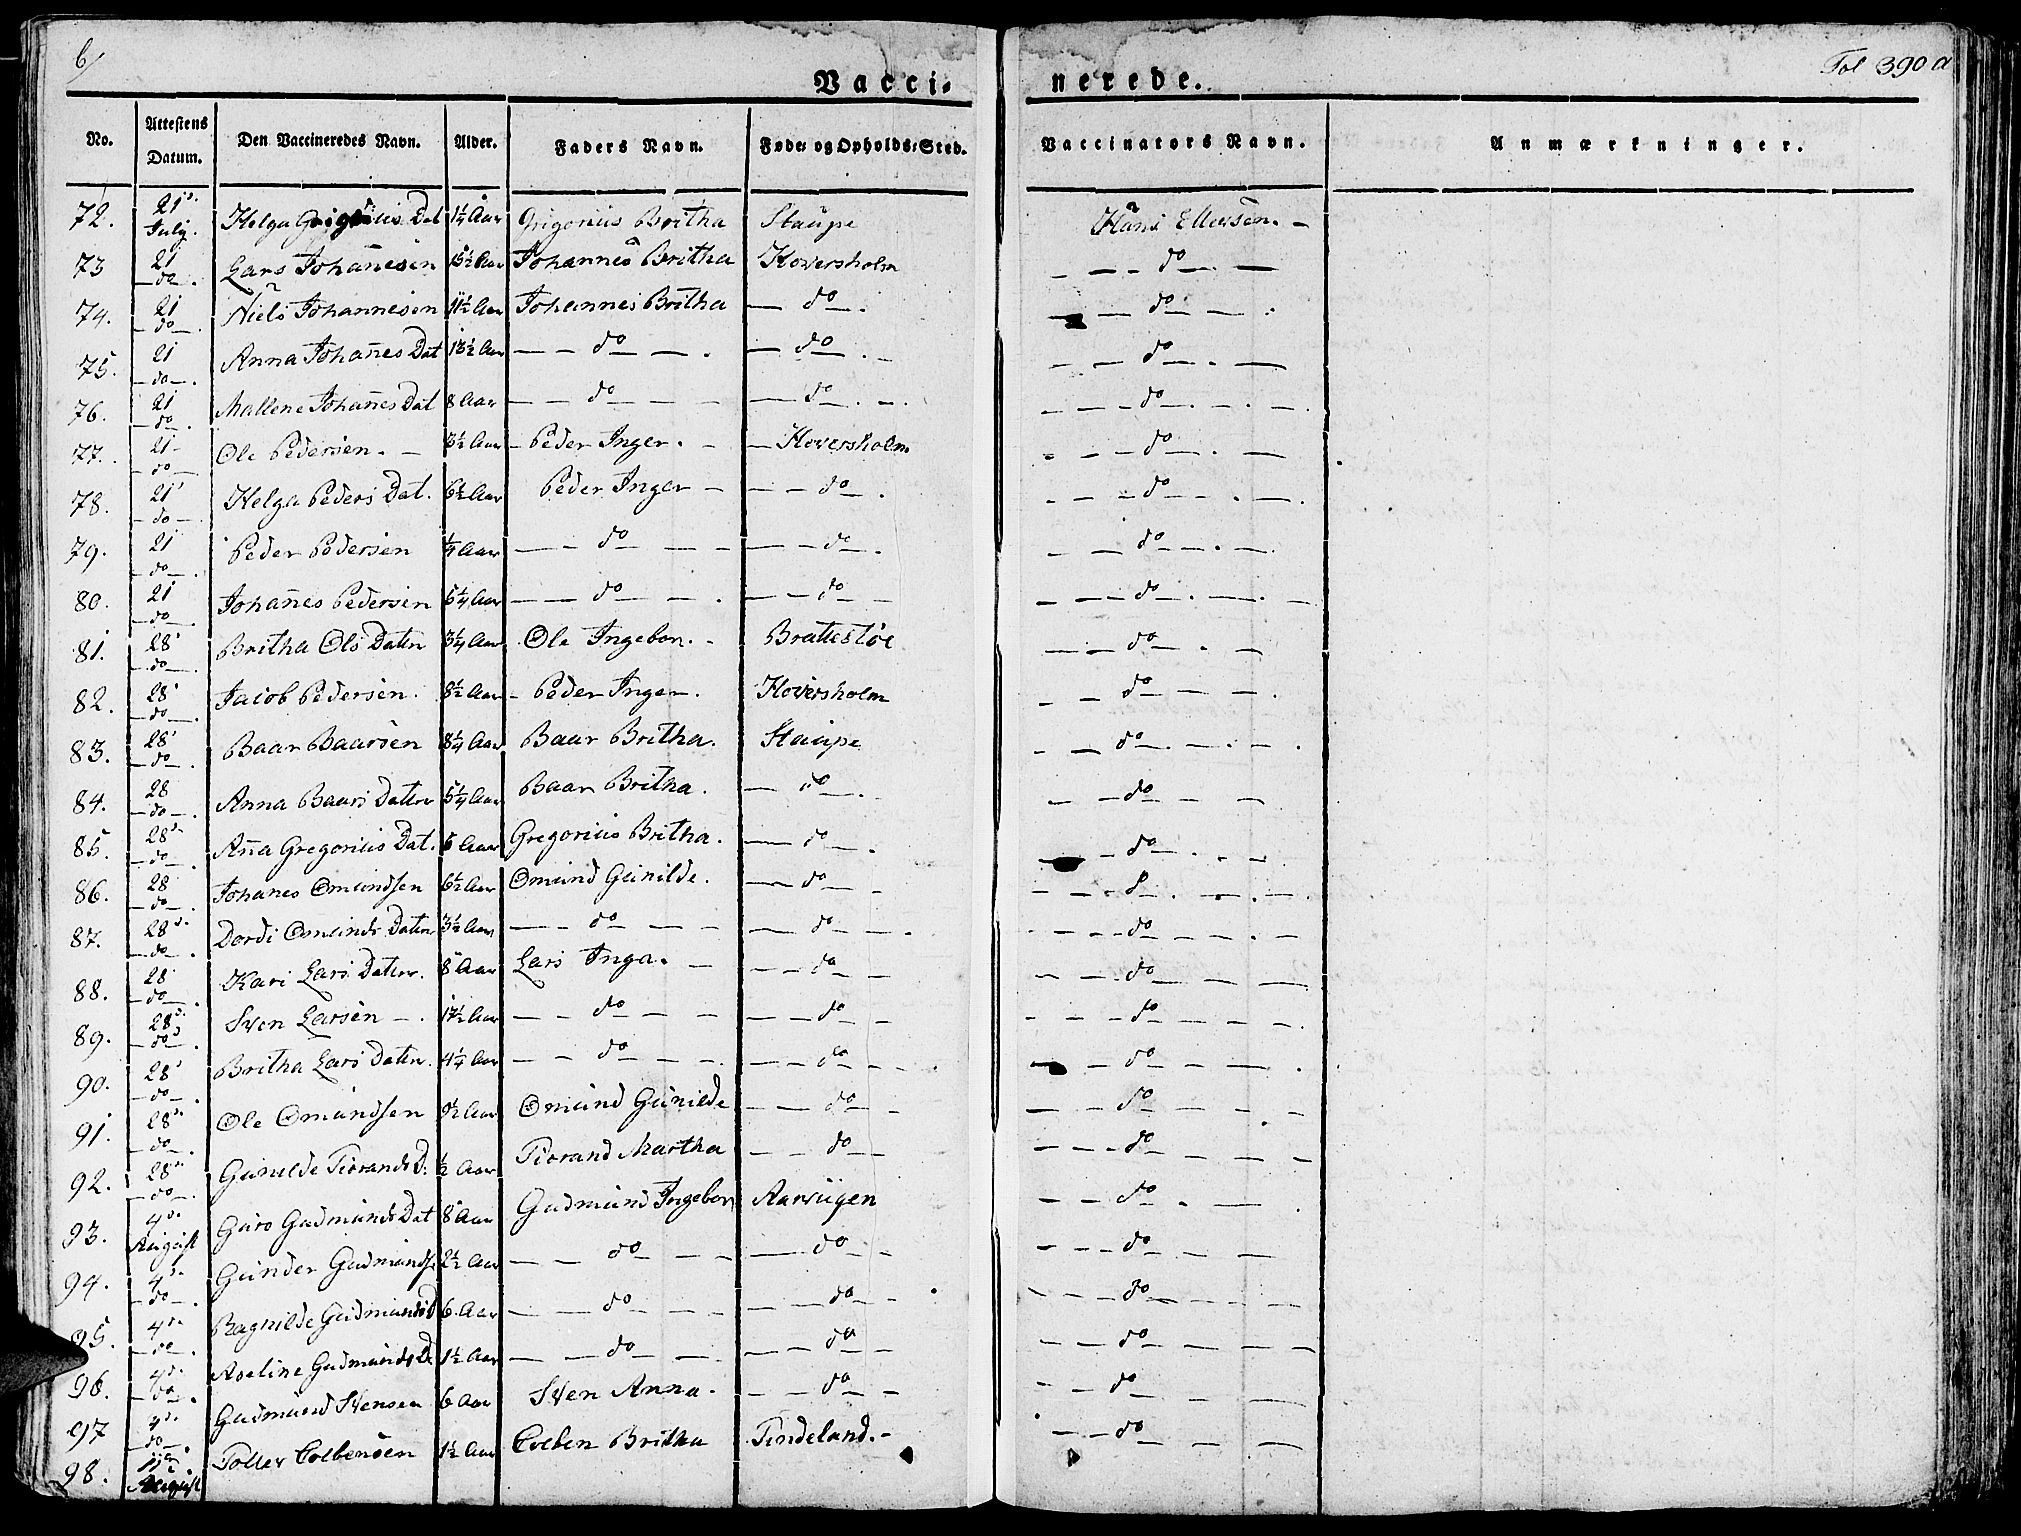 6/
Fol 390 a
Vacci-
nerede.
No.
Attestens Datum.
Den Vaccineredes Navn.
Alder.
Faders Navn.
Føde- og Opholds-Sted.
Vaccinators Navn.
Anmærkninger.
72. 21 July. Helga Grigorius Dat 1¼ Aar Grigorius Britha Staupe Hans Ellersen. –
73 21 do. Lars Johañesen 15½ Aar Johannes Britha Hoversholm – – – do. –
74. 21 do. Niels Johannesen 11½ Aar Johannes Britha – do. – – do – – .
75. 21 do. Anna Johañes Dat 13½ Aar – – do – – . – do. – – – do. – –
76. 21 do. Mallene Johañes Dat 8 Aar – – do – – – – do. – . – – – do. – . – .
77. 21 do Ole Pedersen. – 3½ Aar – Peder Inger. – – Hoversholm – – – do. – . –
78. 21 do. Helga Peders Dat. 6½ Aar Peder Inger – – – do – . – – – do – . – .
79. 21 do. Peder Pedersen ¼ Aar – – do – – – – – do – . – – do – . – .
80. 21 do. Johañes Pedersen 5¼ Aar – – do – – . – – do – – – – – do – . – .
81. 28 do. Britha Ols Daten 3¼ Aar Ole Ingebor. – Brattestøe – – do – . –
82. 28 do. Jacob Pedersen. 8½ Aar – Peder Inger. Hoversholm – – do – – –
83. 28 do. Baar Baarsen 8¼ Aar Baar Britha. Staupe – – do – . – . – .
84. 28 do. Anna Baars Daten 5¼ Aar Baar Britha. – do – . – – do – – –
85. 28 do. Aña Gregorius Dat. 5 Aar Gregorius Britha. – do – . – – do – . – –
86. 28 do. Johanes Omundsen 6½ Aar Omund Gunilde. – do – – – – . d – . – . – .
87. 28 do. Dordi Omunds Daten 3½ Aar – – do – – – – – do – – . – – – do – – . –
88. 28 do. Kari Lars Daten. 8 Aar Lars Inga. – – – do – – – – – do – – –
89. 28 do. Sven Larsen – . 17½ Aar – – do – – – – – do – – – – – do – – – .
90. 28 do. Britha Lars Daten. 4¼ Aar – – do – – – – – do – – – . – – do – – – .
91. 28 do. Ole Omundsen 9½ Aar Omund Gunilde – – do – – – – – do – – – –
92. 28 do. Gunilde Tiorands D. ½ Aar Tiorand Martha – – do – – – – – do – – – –
93. 4 August Guro Gudmunds Dat 8 Aar Gudmund Ingebor Aarviigen – – – do – . – .
94. 4 do. Gunder Gudmunds 2½ Aar – – do – – – – do – – – – – do – – –
95. 4 do Ragnilde Gudmunds D 6 Aar – – do – – – – do – – – – – do – – – –
96. 4 do. Aseline Gudmunds D. 1½ Aar – – do – – – – do – – – – do – – –
97 4 do. Gudmund Svensen 6 Aar Sven Anna. – – do – – – – do – – –
98. 11 August Toller Colbensen 1½ Aar Colben Britha Tindeland. – – – do – – –